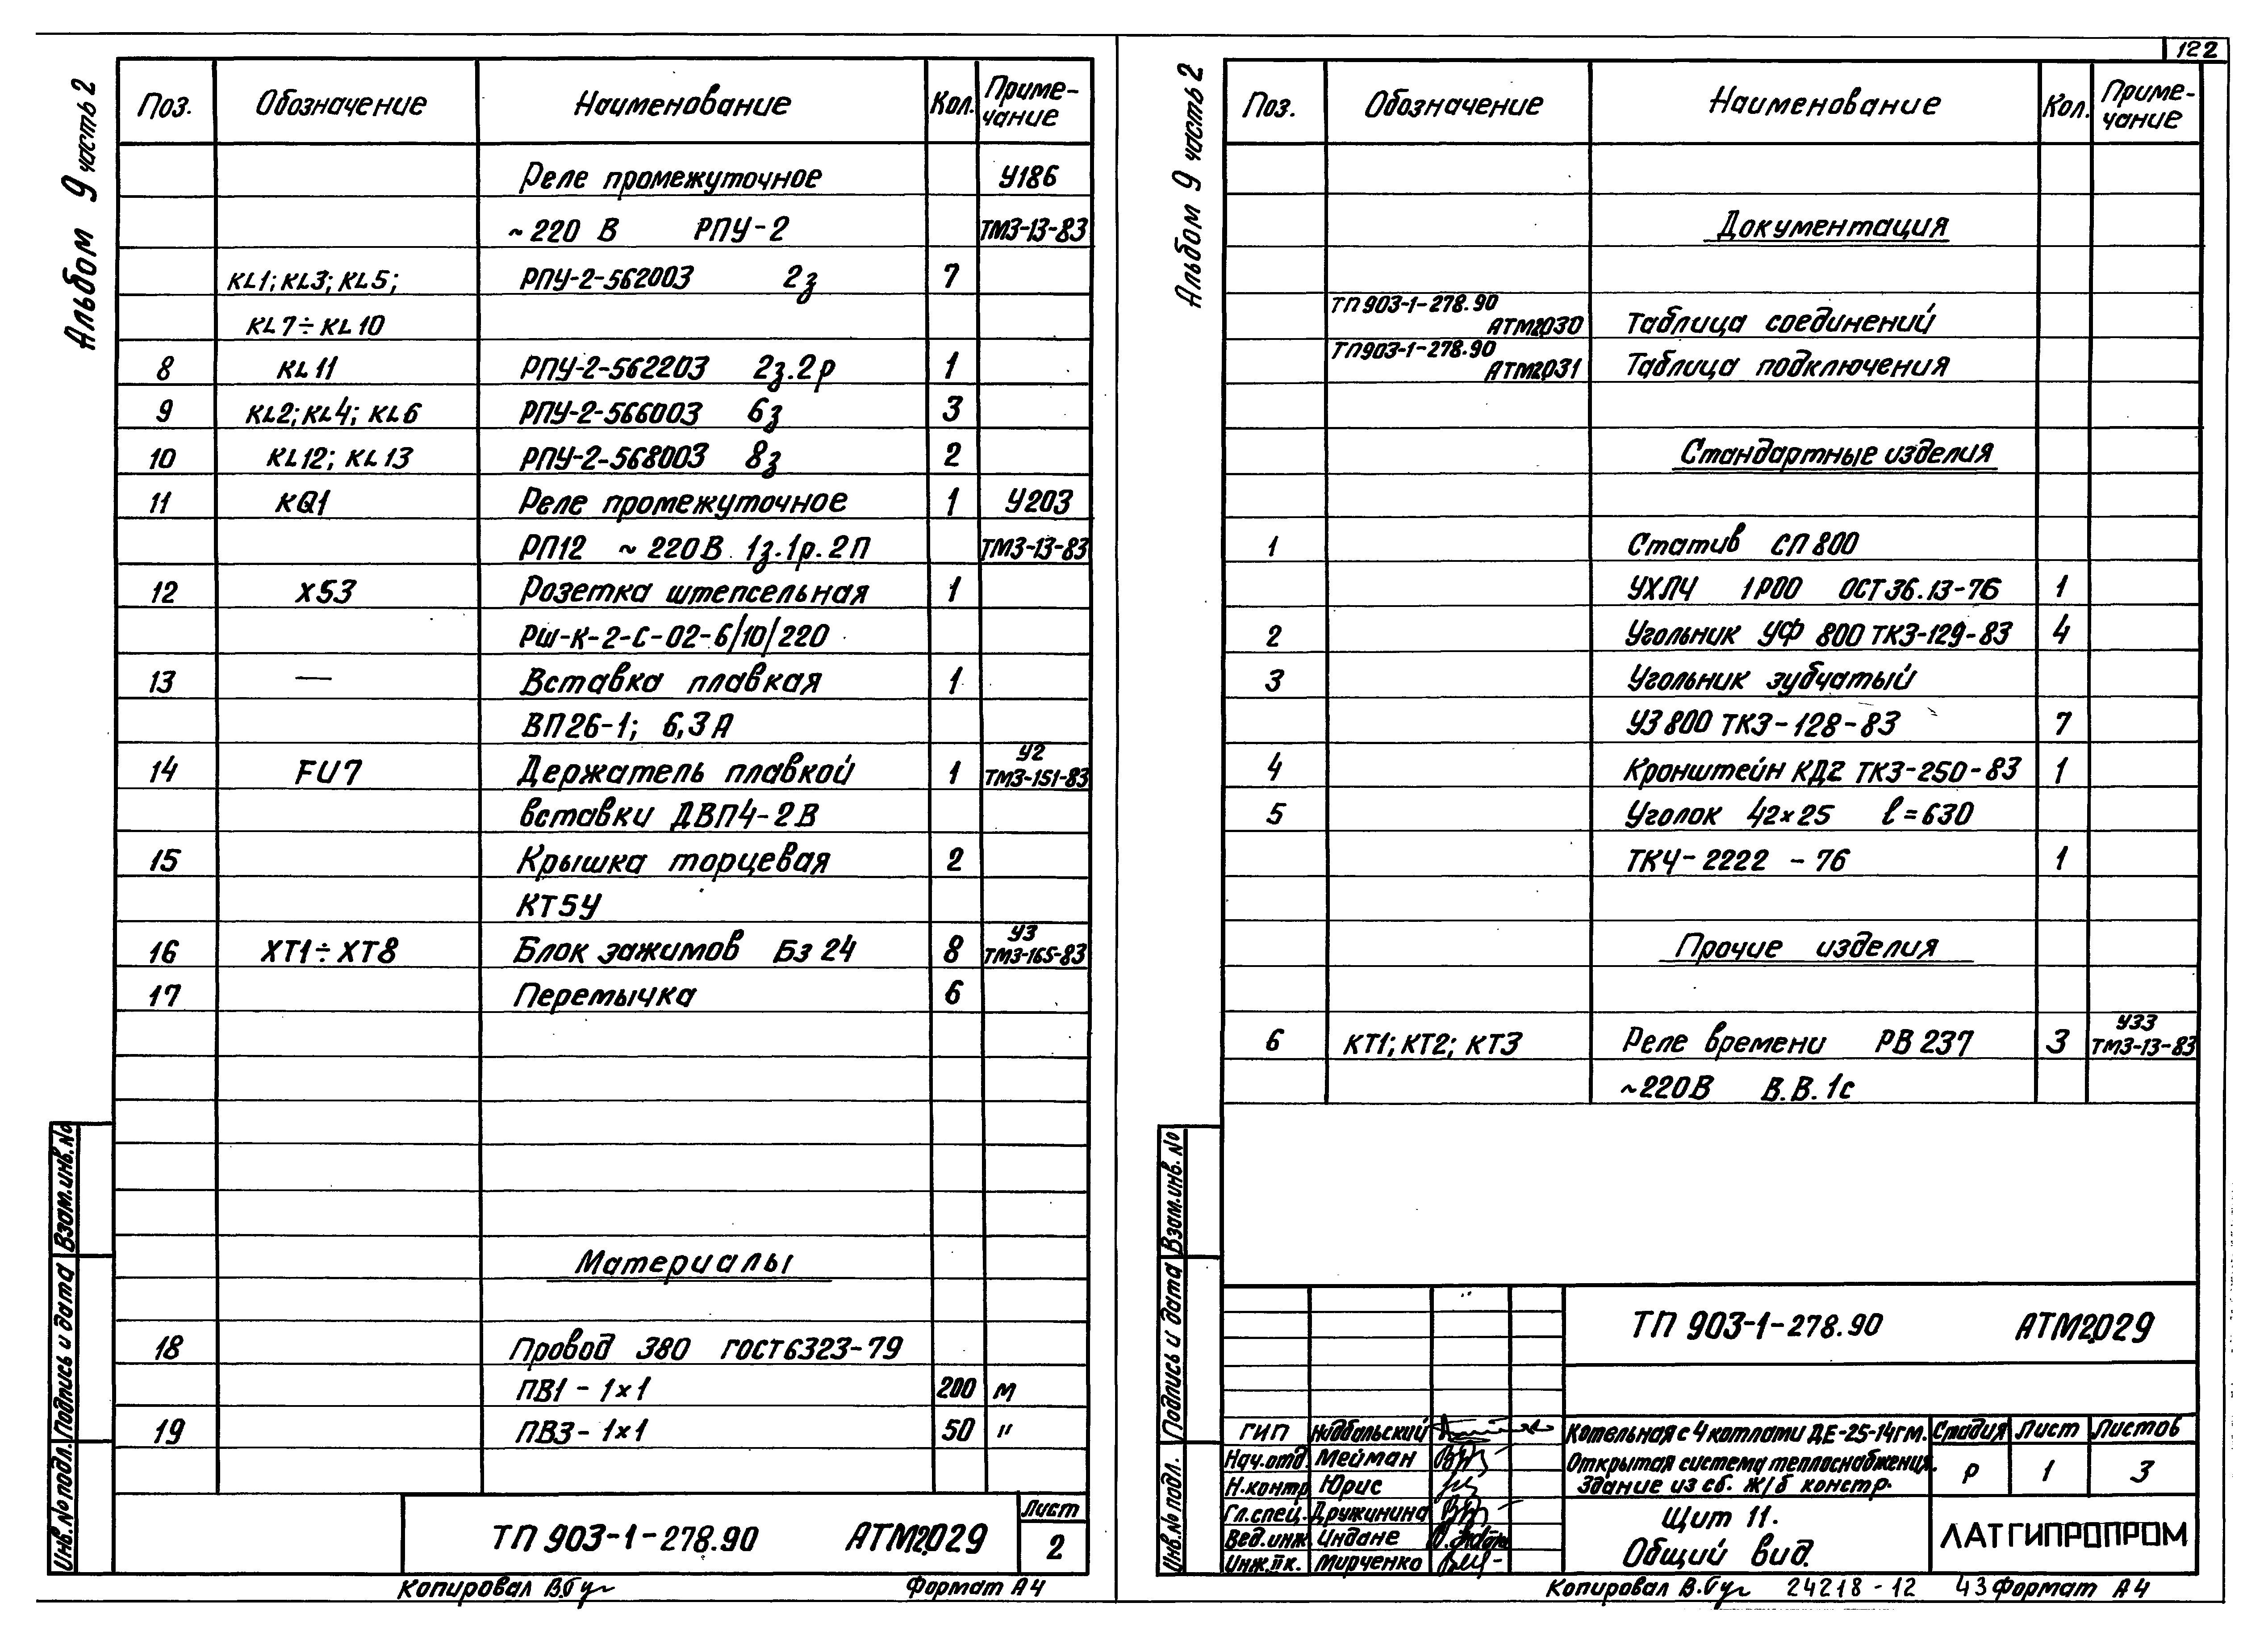 Альбом 9 часть 2
Поз. Обозначение Наименование Кол. Приме-
чание
Реле промежуточное У186
~220 В РПУ-2 ТМ3-13-83
KL1; KL3; KL5; РПУ-2-562003 2з 7
KL7÷KL10
8 KL11 РПУ-2-562203 2з.2р 1
9 KL2; KL4; KL6 РПУ-2-566003 6з 3
10 KL12; KL13 РПУ-2-568003 8з 2
11 KQ1 Реле промежуточное 1 У203
РП12 ~220В 1з.1р.2П ТМ3-13-83
12 XS3 Розетка штепсельная 1
РШ-К-2-С-02-6/10/220
13 — Вставка плавкая 1
ВП26-1; 6,3А
14 FU7 Держатель плавкой 1 У2
ТМ3-151-83
вставки ДВП4-2В
15 Крышка торцевая 2
КТ5У
16 XT1÷XT8 Блок зажимов Бз 24 8 У3
ТМ3-165-83
17 Перемычка 6
Материалы
18 Провод 380 ГОСТ 6323-79
ПВ1 - 1×1 200 м
19 ПВ3 - 1×1 50 "
Взам.инв.№
Подпись и дата
Инв.№ подл.
ТП 903-1-278.90 АТМ2.029
Лист
2
Копировал В.Буг Формат А4
122
Альбом 9 часть 2
Поз. Обозначение Наименование Кол. Приме-
чание
Документация
ТП 903-1-278.90
АТМ2.030 Таблица соединений
ТП903-1-278.90
АТМ2.031 Таблица подключения
Стандартные изделия
1 Статив СП 800
УХЛЧ 1Р00 ОСТ36.13-76 1
2 Угольник УФ 800 ТК3-129-83 4
3 Угольник зубчатый
УЗ 800 ТК3-128-83 7
4 Кронштейн КД2 ТК3-250-83 1
5 Уголок 42×25 ℓ=630
ТКЧ-2222-76 1
Прочие изделия
6 КТ1; КТ2; КТ3 Реле времени РВ 237 3 У33
ТМ3-13-83
~220В В.В.1с
Взам.инв.№
Подпись и дата
Инв.№ подл.
ТП 903-1-278.90 АТМ2.029
ГИП
Нач.отд. Мейман
Н.контр Юрис
Гл.спец. Дружинина
Вед.инж Индане
Инж.IIк. Мирченко
Котельная с 4 котлами ДЕ-25-14гм.
Открытая система теплоснабжения.
Здание из сб. ж/б констр.
Стадия Лист Листов
Р 1 3
Щит 11.
Общий вид.
ЛАТГИПРОПРОМ
Копировал В.Буг 24218-12 43 Формат А4